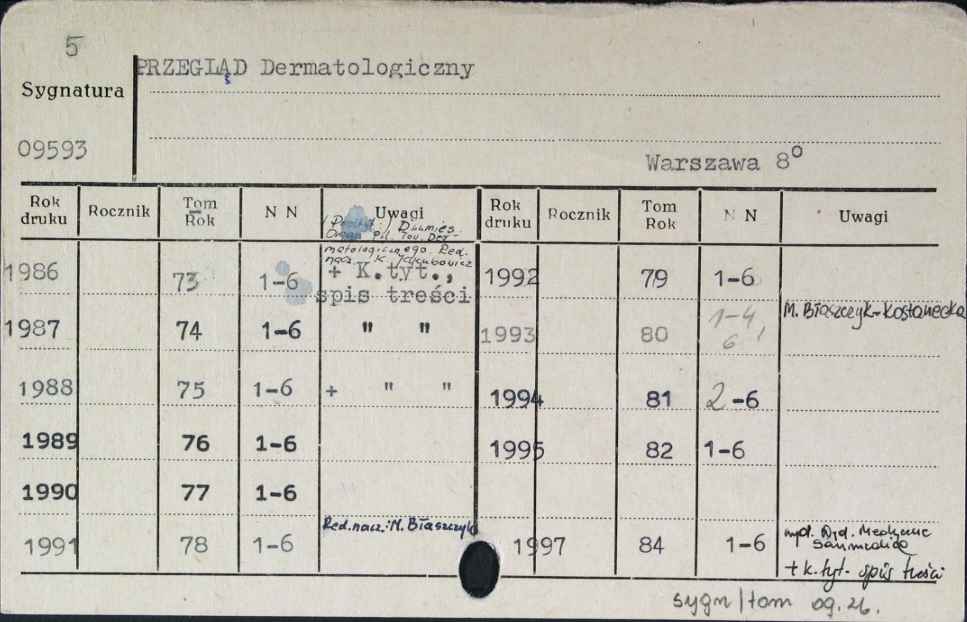 5
PRZEGLĄD Dermatologiczny
Sygnatura
09593
Warszawa 8º
Rok druku Rocznik Tom Rok N N Uwagi Rok druku Rocznik Tom Rok N N Uwagi
Dwumies.
Organ Tow. Der-
matologicznego Red.
nacz. K. Jakubowicz
1986 73 1-6 + K.tyt., 1992 79 1-6
spis treści
M. Błaszczyk-Kostanecka
1987 74 1-6 " " 1993 80 1-4, 6
1988 75 1-6 + " " 1994 81 2-6
1989 76 1-6 1995 82 1-6
1990 77 1-6
Red.nacz.: M. Błaszczyk
1991 78 1-6 1997 84 1-6 Wyd.
+ k.tyt. spis treści
sygn/tom 09.26.